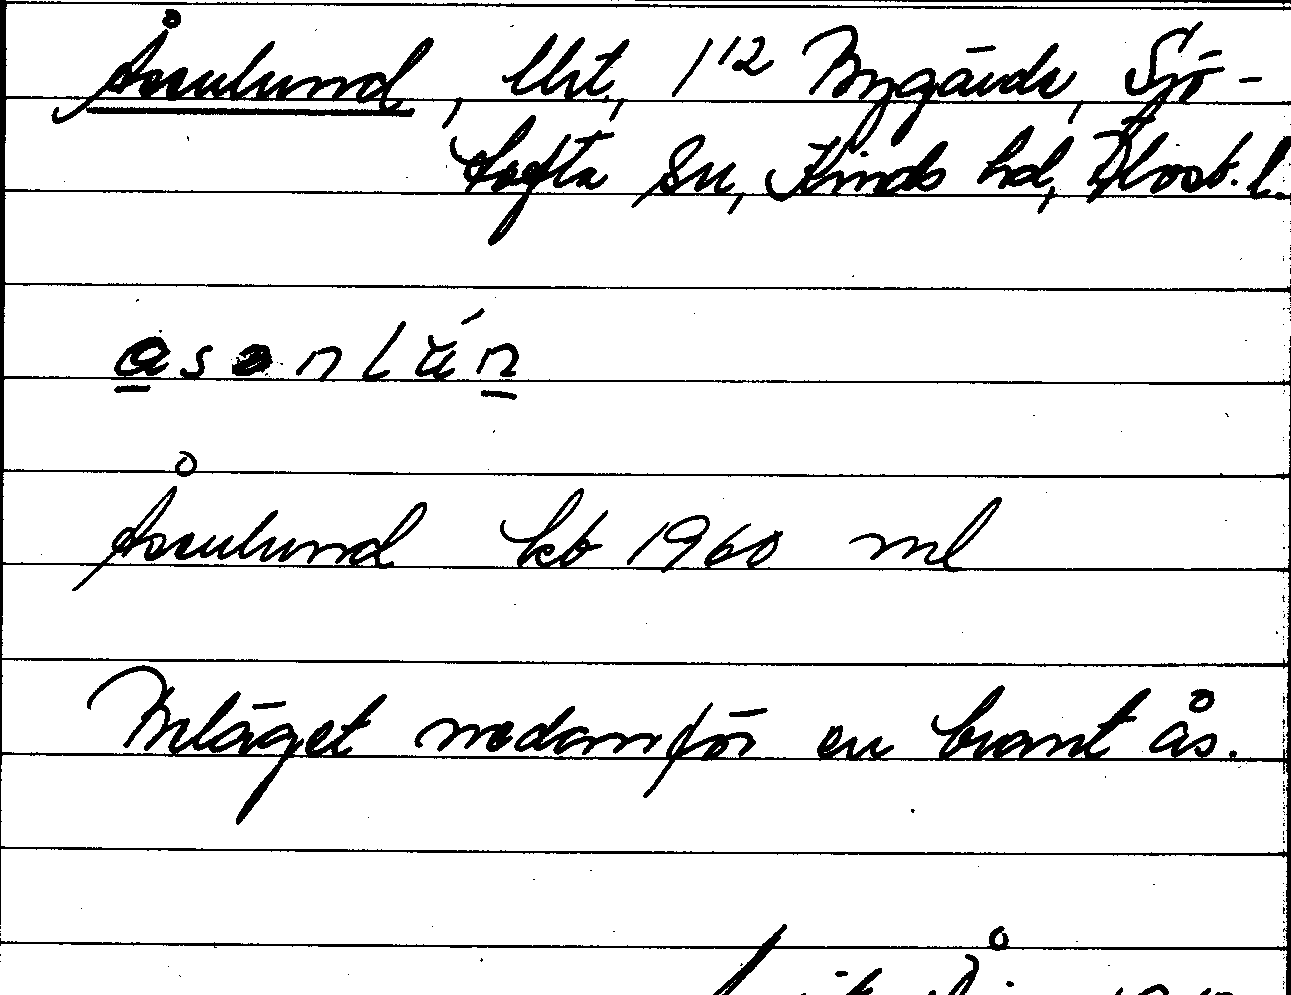 Åsenlund, lht, 1/2 Bygärde, Sjö-
tofta sn, Kinds hd, Älvsb. l.
Åsenlund kb 1960 ml
Beläget nedanför en brant ås.